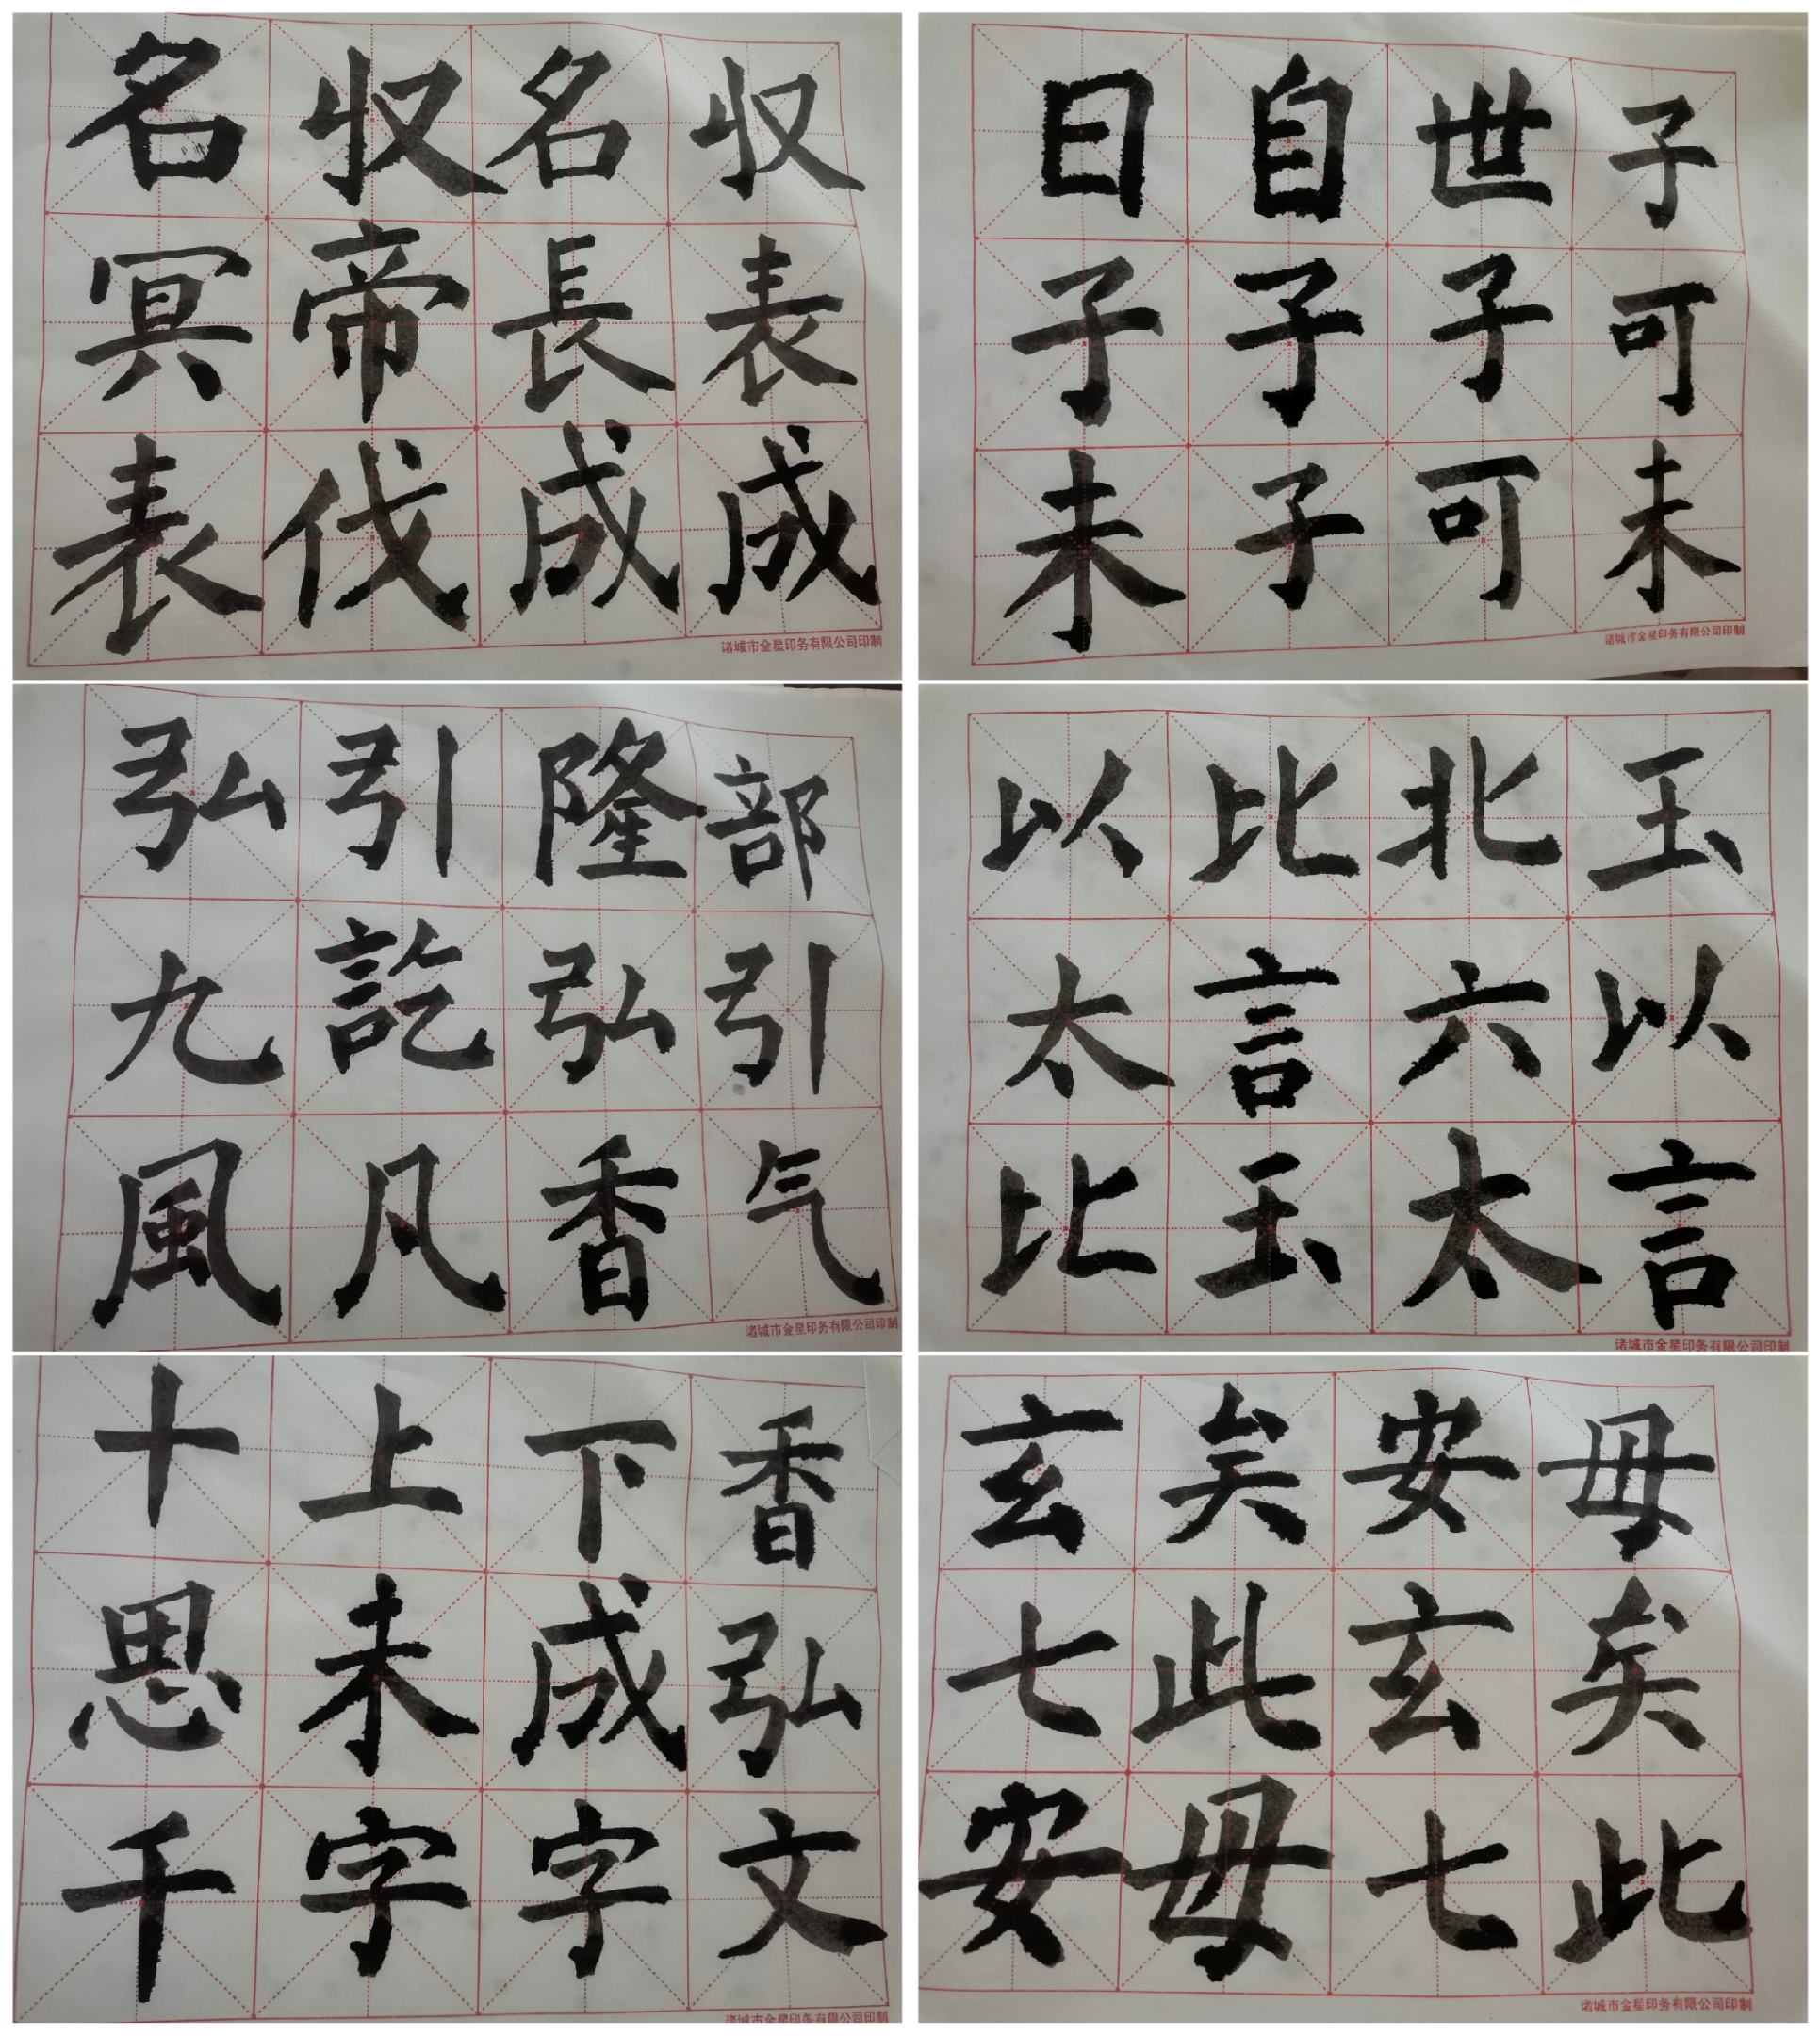 名収名収
冥帝長表
表伐成成
诸城市金星印务有限公司印制
日自世子
子子子可
未子可未
诸城市金星印务有限公司印制
弘引隆部
九訖弘引
風凡香气
诸城市金星印务有限公司印制
以比北玉
太言六以
比玉太言
诸城市金星印务有限公司印制
十上下香
思未成弘
千字字文
诸城市金星印务有限公司印制
玄矣安毋
七此玄矣
安毋七此
诸城市金星印务有限公司印制